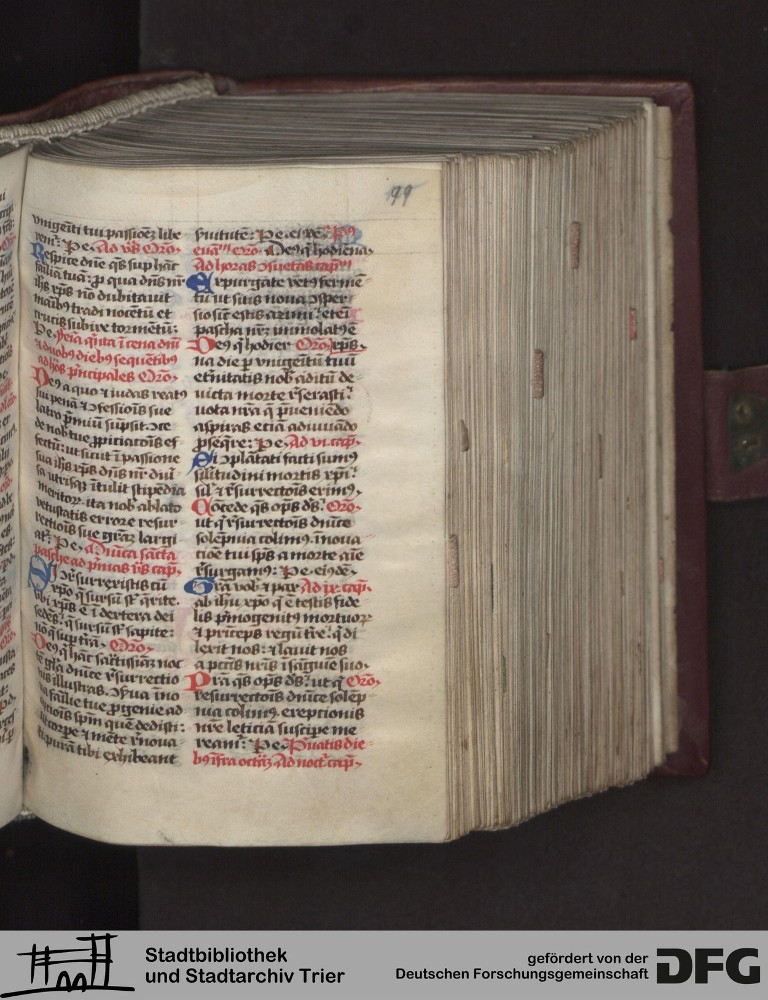 99
vnigeīti tui passiōeʒ libe
rem᷑: Pe Ad vꝰs Oro
Respice dn̄e q̄s sup hāc
familiā tuā: ꝓ qua dn̄s nr̄
ihs xp̄s nō dubitauit
maībꝰ tradi nocētū et
crucis subire tormētū:
Pe feria q̄īta ī cena dn̄i
⁊ duobꝰ diebꝰ sequētibꝰ
ad hōs pn̄cipales Oro
Deꝰ a quo ⁊ iudas reatꝰ
sui penā ⁊ ꝯfessiois sue
latro p̄miū sūpsit: ꝯce
de nob̄ tue ꝓpiciatiōis ef
fectū: ut sicut ī passione
sua ihs xp̄s dn̄s nr̄ diu
sa utrisqꝫ ītulit stipēdia
meritoꝝ: ita nob̄ ablato
vetustatis errore resur
rectiois sue grām̄ largi
at᷑: Pe Dn̄ica sācta
pasche ad p̄mas vꝰs cap̄
Si ꝯsurrexistis cū
xp̄o q̄ sursū sꝭ q̄rite.
vbi xp̄s ē ī dextera dei
sedēs: q̄ sursū sꝭ sapite:
nō q̄ sup trā. Oro
Deꝰ q̄ hāc sac̄tissiaʒ noc
tē gl̄a dn̄ice rꝭsurrectio
nis illustras. ꝯserua ī no
ua familie tue ꝓgenie ad
optiōis sp̄m quē dedisti:
ut corpe ⁊ mēte rꝭnoua
ti purā tibi exhibeant
suitutē: Pe eūdē. Pꝰ
euāᵐ oro. Deꝰ q̄ hodierna
Ad horas ꝯsuetas cap̄ᵐ
Expurgate vetꝰ fermē
tū ut sitis noua ꝯsper
sio sic̄ estis azimi: eteī
pascha nr̄m īmolatꝰ ē
Deꝰ q̄ hodier Oro xp̄s.
na die p vnigeītū tuū
et̄nitatis nob̄ aditū de
uicta morte rꝭserasti:
uota nr̄a q̄ p̄ueniēdo
aspiras etiā adiuuādo
ꝓseq̄re: Pe Ad vi cap̄
Si ꝯplātati facti sumꝰ
sil̄itudini mortis xp̄i:
sil̄ ⁊ rꝭsurrectiōis erimꝰ
Cōcede q̄s op̄s ds̄: Oro
ut q̄ rꝭsurrectiōis dn̄ice
solēpnia colimꝰ. īnoua
tiōe tui sp̄s a morte aīe
rꝭsurgamꝰ: Pe eūdē
Gr̄a vob̄ ⁊ pax Ad ix cap̄
ab ihū xp̄o q̄ ē testis fide
lis p̄mogenitꝰ mortuoꝝ
⁊ p̄nceps regū tr̄e: q̄ di
lexit nos: ⁊ lauit nos
a pcc̄is nr̄is ī sāguie suo
Pr̄a q̄s op̄s ds̄: ut q̄ Oro
resurrectiōis dn̄ice solēp
nia colimꝰ. ereptionis
nr̄e leticiā suscipe me
reamᷣ: Pe Pꝰuatis die
bꝰ īfra octāʒ Ad noct᷑ cap̄
Stadtbibliothek
und Stadtarchiv Trier
gefördert von der
Deutschen Forschungsgemeinschaft
DFG